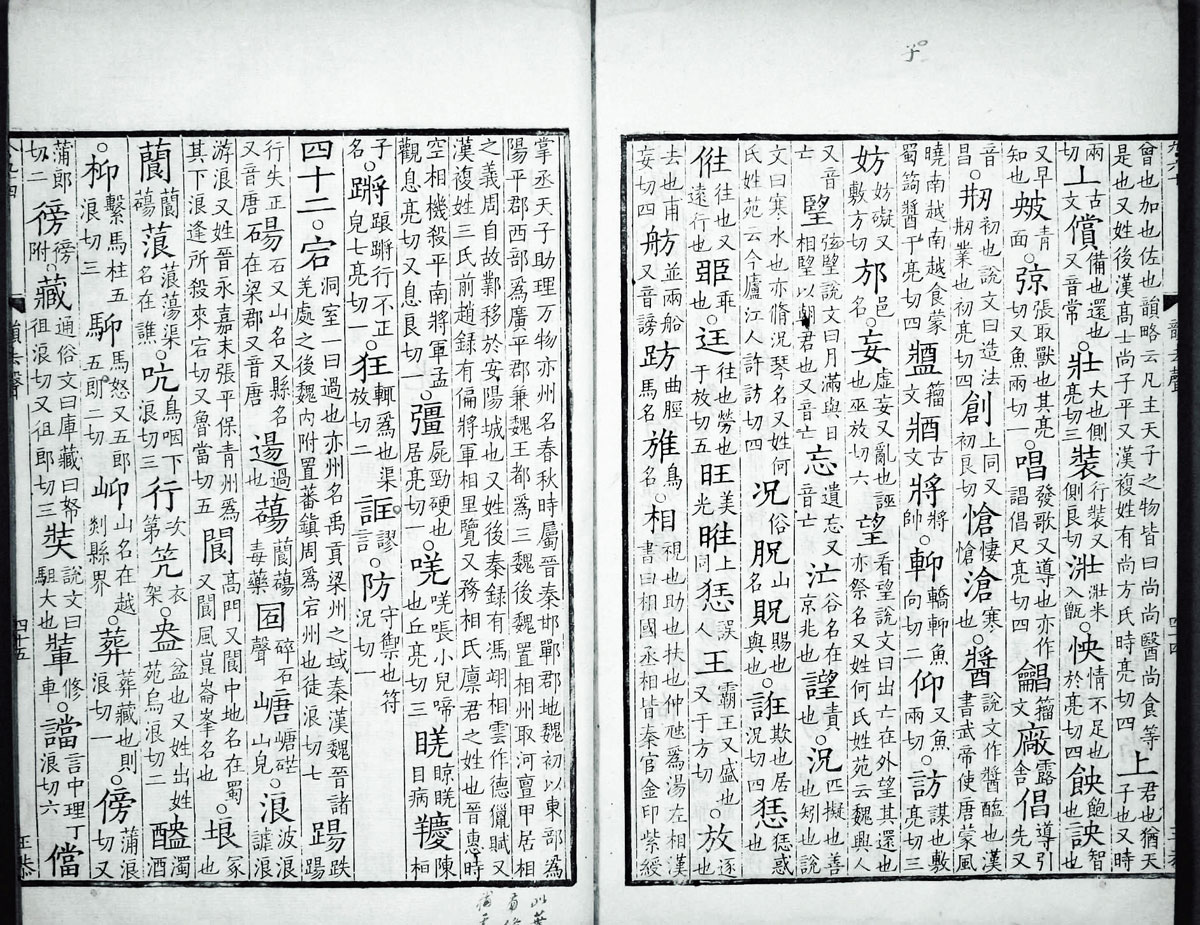 曾也加也佐也韻略云凡主天子之物皆曰尚尚醫尚食等是也又姓後漢髙士尚子平又漢複姓有尚方氏時亮切四上君也猶天子也又時
兩切丄古文償備也還也又音常○壯大也側亮切三裝行裝又側良切米入甑○怏情不足也於亮切四飽也詇智也
又早知也青面○弶張取獸也其亮切又魚兩切一○唱發歌又導也亦作誯倡尺亮切四籀文廠露舍倡導引先又
音昌○刱初也說文曰造法刱業也初亮切四創上同又初良切愴悽愴滄寒也○醬說文作醬醢也漢書武帝使唐蒙風
曉南越南越食蒙蜀蒟醬子亮切四籀文古文將將帥○轎魚向切二仰又魚兩切○訪謀也敷亮切三
妨妨礙又敷方切邡邑名○妄虛妄又亂也誣也巫放切六望看望說文曰出亡在外望其還也亦祭名又姓何氏姓苑云魏興人
又音亡朢弦朢說文曰月滿與日相朢以朝君也又音亡忘遺忘又音亡汒谷名在京兆也謹責○況匹擬也善也矧也說
文曰寒水也亦脩況琴名又姓何氏姓苑云今廬江人許訪切四况俗山名貺賜也與也○誑欺也居況切四惑也
往也又遠行也乖也○迋往也勞也于放切五旺美光暀上同誤人王霸王又盛也又于方切○放逐
去也甫妄切四舫並兩船又音謗趽曲脛馬名鳥名○相視也助也扶也仲虺爲湯左相漢書曰相國丞相皆秦官金印紫綬
掌丞天子助理万物亦州名春秋時屬晉秦邯鄲郡地魏初以東部爲陽平郡西部爲廣平郡兼魏王都爲三魏後魏置相州取河亶甲居相
之義周自故鄴移於安陽城也又姓後秦録有馮翊相雲作德獵賦又漢複姓三氏前趙録有偏將軍相里覽又務相氏廩君之姓也晉惠時
空相機殺平南將軍孟觀息亮切又息良切一○彊屍勁硬也居亮切一○唴唴哴小兒啼也丘亮切三目病陳名
子○蹡踉蹡行不正皃七亮切一○狂輒爲也渠放切二誆謬言○防守禦也符況切一
四十二○宕洞室一曰過也亦州名禹貢梁州之域秦漢魏晉諸羌處之後魏内附置蕃鎮周爲宕州也徒浪切七踼跌踼
行失正又音唐碭石又山名又縣名在梁郡又音唐逿過也蘯蘭蘯毒藥碎石聲嵣山皃○浪波浪謔浪
游浪又姓晉永嘉末張平保青州爲其下浪逢所殺來宕切又魯當切五閬髙門又閬中地名在蜀又閬風崑崙峯名也埌冢也
藺蒗蒗蕩渠名在譙○吭鳥咽下浪切三行次第衣架○盎盆也又姓出姓苑烏浪切二醠濁酒
○枊繫馬柱五浪切三馬怒又五郎切山名在越剡縣界○葬葬藏也則浪切一○傍蒲浪切又
蒲郎切二徬附○藏通俗文曰庫藏曰帑徂浪切又徂郎切三奘說文曰駔大也修車○讜言中理丁浪切六儅
四十四
四十五